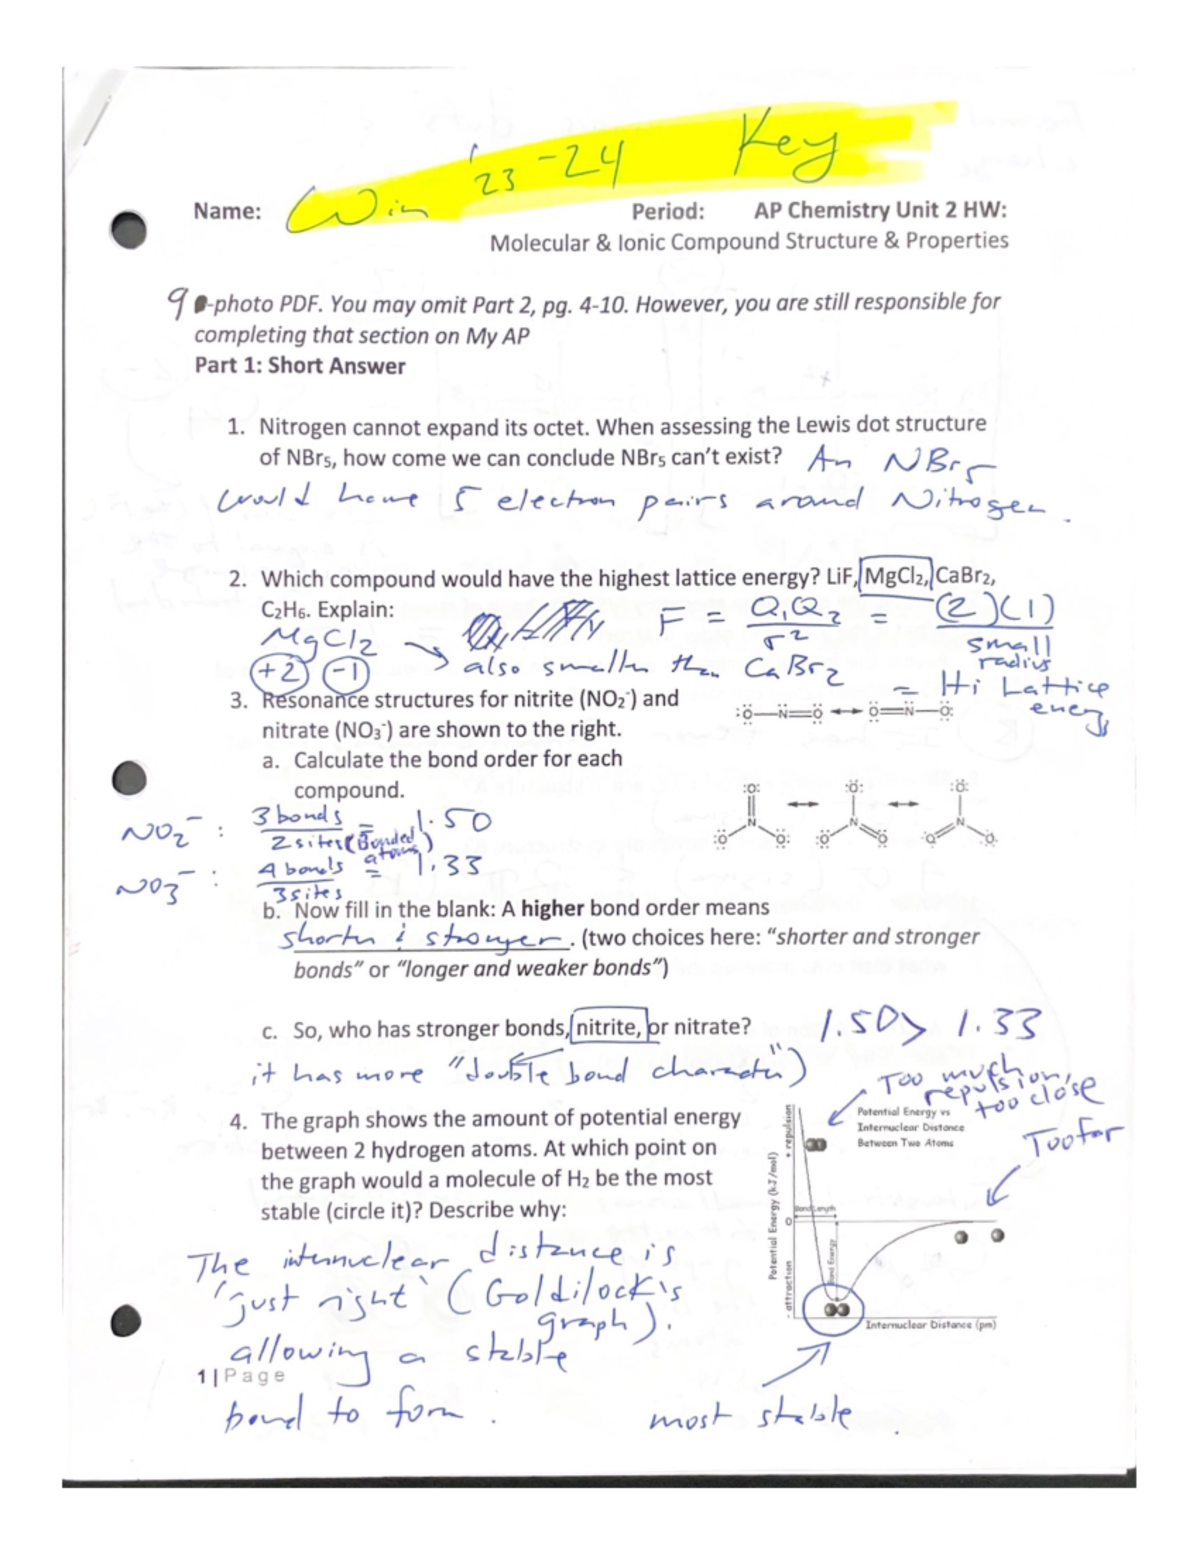 '23-24 Key
Name: Win Period: AP Chemistry Unit 2 HW:
Molecular & Ionic Compound Structure & Properties
9 -photo PDF. You may omit Part 2, pg. 4-10. However, you are still responsible for
completing that section on My AP
Part 1: Short Answer
1. Nitrogen cannot expand its octet. When assessing the Lewis dot structure
of NBr₅, how come we can conclude NBr₅ can't exist? An NBr₅
would have 5 electron pairs around Nitrogen.
2. Which compound would have the highest lattice energy? LiF, MgCl₂, CaBr₂,
C₂H₆. Explain:
F = Q₁Q₂ / r² = (2)(1) / small radius
MgCl₂
+2 -1
also smaller than CaBr₂
= Hi Lattice
energy
3. Resonance structures for nitrite (NO₂⁻) and
nitrate (NO₃⁻) are shown to the right.
:Ö—N̈=Ö ↔ Ö=N̈—Ö:
a. Calculate the bond order for each
compound.
NO₂⁻: 3 bonds / 2 sites (Bonded atoms) = 1.50
NO₃⁻: 4 bonds / 3 sites = 1.33
b. Now fill in the blank: A higher bond order means
shorter & stronger. (two choices here: "shorter and stronger
bonds" or "longer and weaker bonds")
c. So, who has stronger bonds, nitrite, or nitrate? 1.50 > 1.33
it has more "double bond character")
4. The graph shows the amount of potential energy
between 2 hydrogen atoms. At which point on
the graph would a molecule of H₂ be the most
stable (circle it)? Describe why:
Too much
repulsion,
too close
Too far
Potential Energy vs
Internuclear Distance
Between Two Atoms
+ repulsion
Potential Energy (kJ/mol)
- attraction
0
Bond Length
Bond Energy
Internuclear Distance (pm)
The internuclear distance is
'just right' (Goldilock's
graph).
allowing a stable
1 | Page
bond to form.
most stable